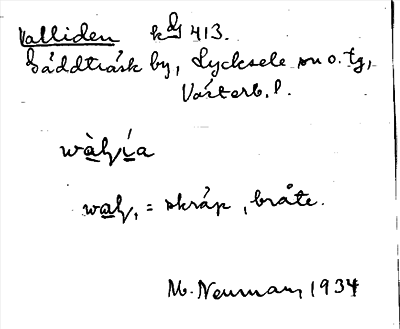 Valliden kdj 413.
Gäddträsk by, Lycksele sn o. tg,
Västerb. l.
wàlía
wal, = skräp, bråte.
M. Neuman, 1934